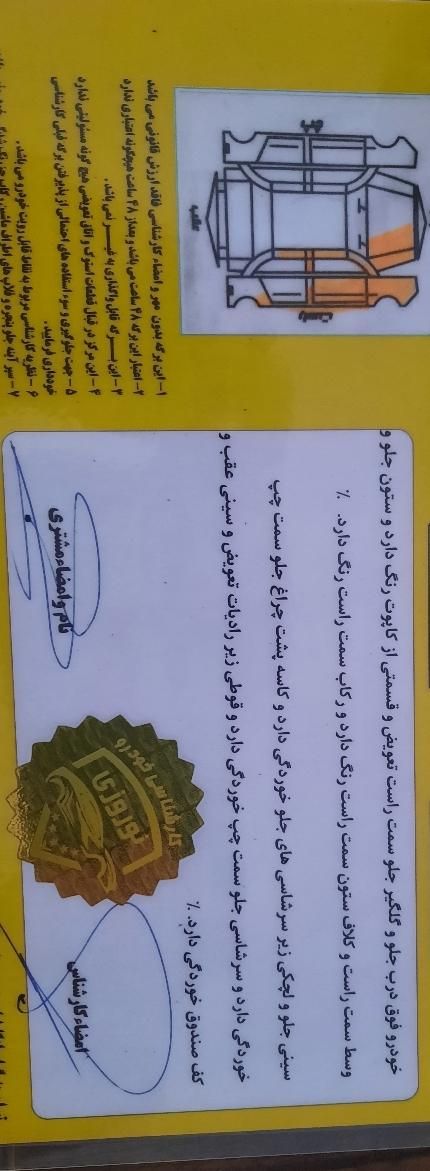 چپ
عقب
راست
۱- این برگه بدون مهر و امضاء کارشناسی فاقد ارزش قانونی می باشد
۲- اعتبار این برگه ۴۸ ساعت می باشد و بعد از ۴۸ ساعت هیچگونه اعتباری ندارد
۳- این برگه قابل واگذاری به غیر نمی باشد.
۴- این مرکز در قبال قطعات استوک و اتاق تعویض هیچ گونه مسئولیتی ندارد
۵- جهت جلوگیری و سوء استفاده های احتمالی از پذیرفتن برگه قبلی کارشناسی
خودداری فرمایید.
۶- نظریه کارشناسی مربوط به نقاط قابل رویت خودرو می باشد.
خودرو فوق درب جلو و گلگیر جلو سمت راست تعویض و قسمتی از کاپوت رنگ دارد و ستون جلو و
وسط سمت راست و کلاف ستون سمت راست رنگ دارد و رکاب سمت راست رنگ دارد. %
سینی جلو و لچکی زیر سرشاسی های جلو خوردگی دارد و کاسه پشت چراغ جلو سمت چپ
خوردگی دارد و سرشاسی جلو سمت چپ خوردگی دارد و قوطی زیر رادیات تعویض و سینی عقب و
کف صندوق خوردگی دارد. %
نام و امضاء مشتری
کارشناسی خودرو
نوروزی
امضاء کارشناس